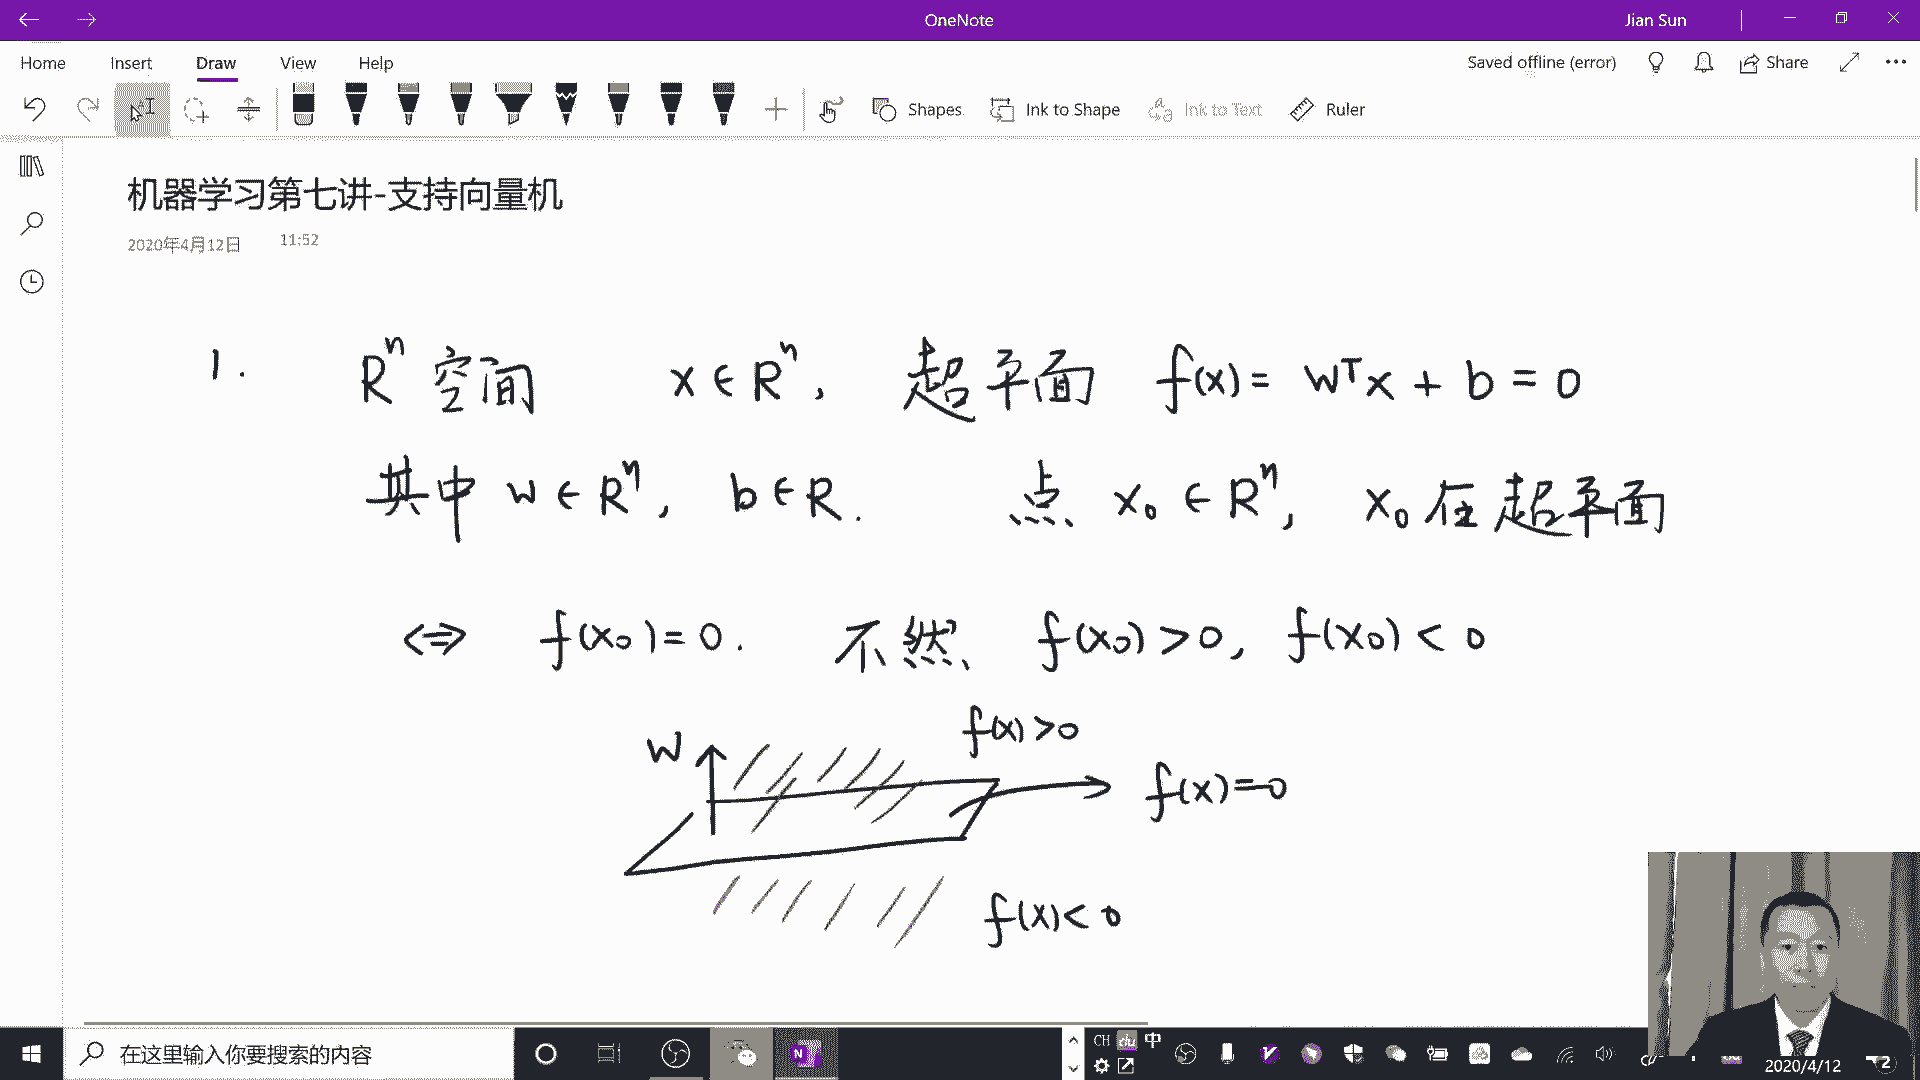 OneNote
Jian Sun
Home Insert Draw View Help
Saved offline (error)
Share
Shapes
Ink to Shape
Ink to Text
Ruler
机器学习第七讲-支持向量机
2020年4月12日 11:52
1. Rⁿ空间 x∈Rⁿ, 超平面 f(x)= Wᵀx + b = 0
其中 w∈Rⁿ, b∈R. 点 x₀∈Rⁿ, x₀在超平面
<=> f(x₀)=0. 不然 f(x₀)>0, f(x₀)<0
W
f(x)>0
f(x)=0
f(x)<0
在这里输入你要搜索的内容
N
CH du 中
2020/4/12
2